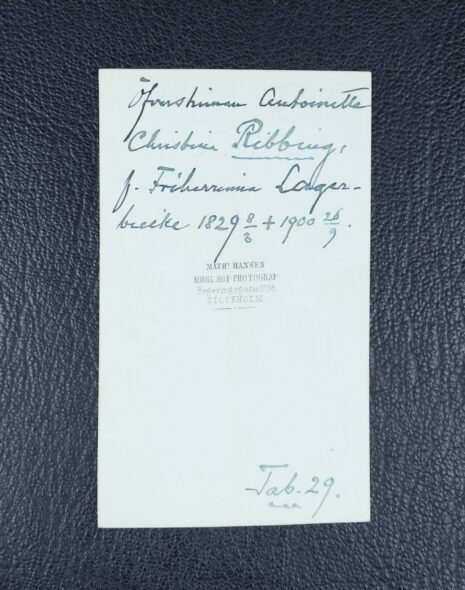 Öfverstinnan Antoinette
Christina Ribbing,
f. Friherrinna Lager-
bielke 1829 8/3 + 1900 26/9.
MATHs HANSEN
KONGL. HOF-PHOTOGRAF
Regeringsgatan
STOCKHOLM.
Tab. 29.